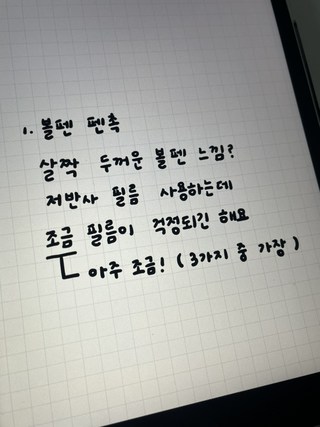 1. 볼펜 펜촉
살짝 두꺼운 볼펜 느낌?
저반사 필름 사용하는데
조금 필름이 걱정되긴 해요
아주 조금! (3가지 중 가장)